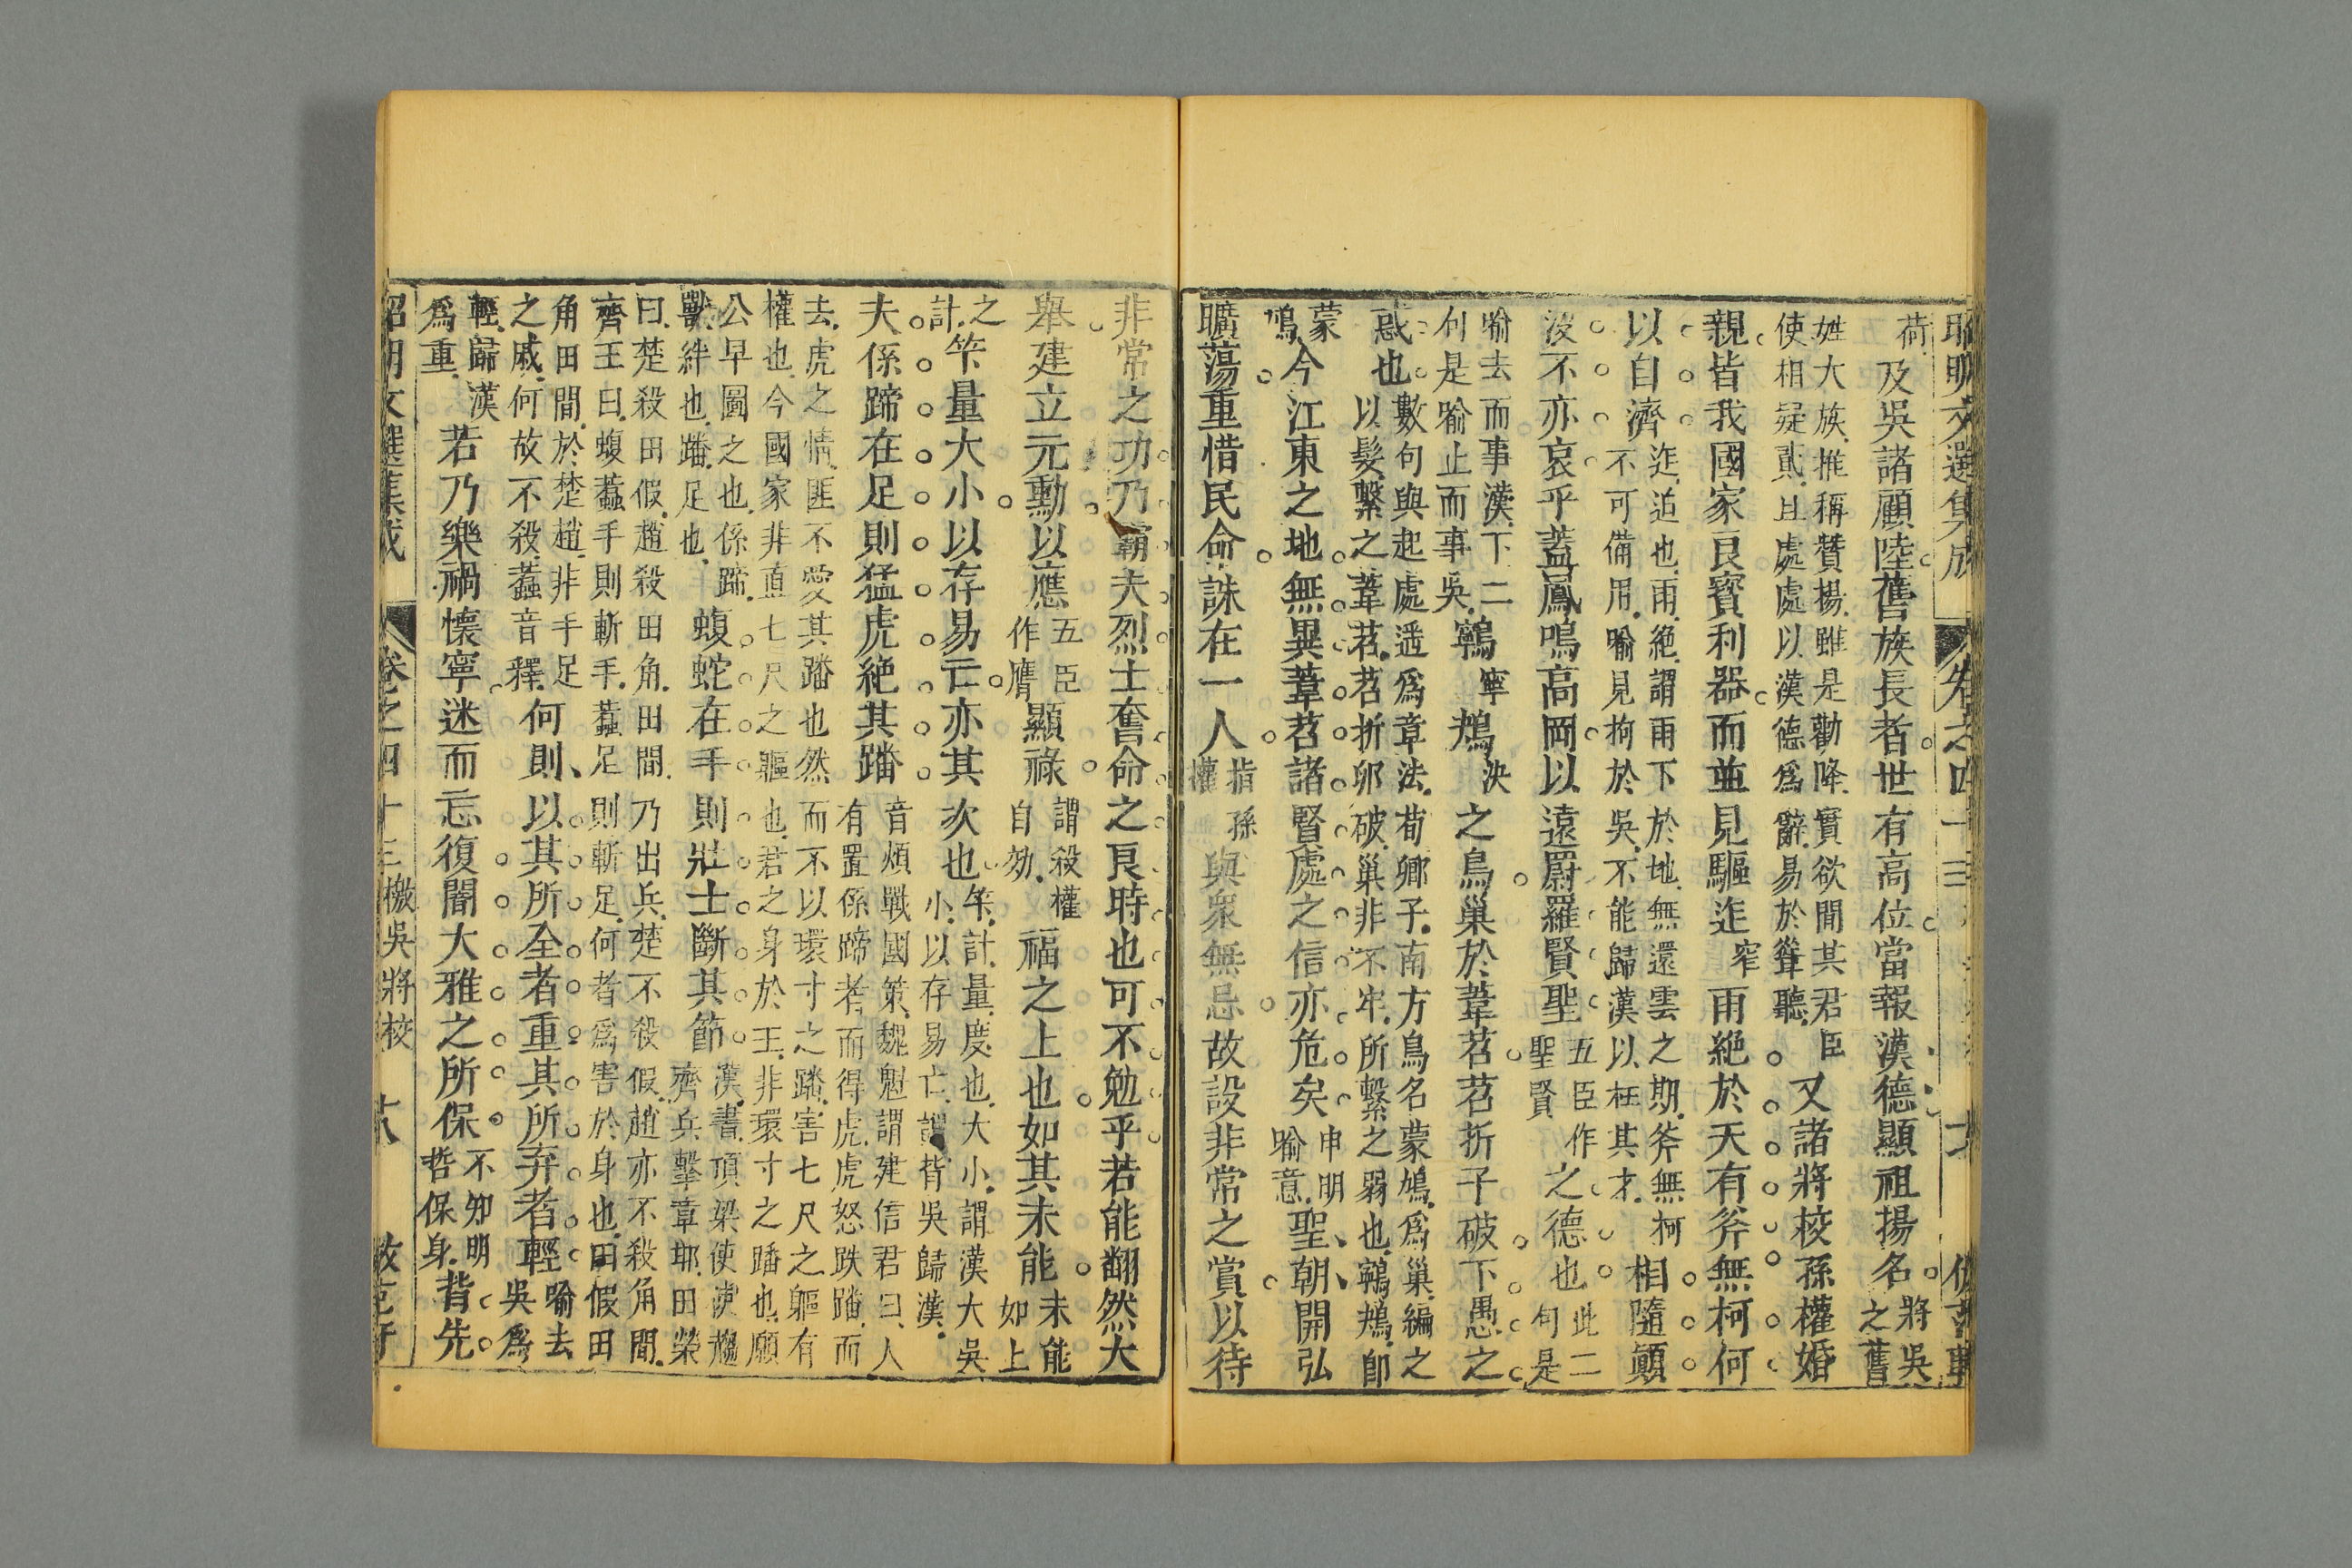 昭明文選集成 卷之四十三
荷 及吳諸顧陸舊族長者世有高位當報漢德顯祖揚名 將吳之舊
姓大族推稱贊揚雖是勸降實欲間其君臣使相疑貳且處處以漢德爲辭易於聳聽 又諸將校孫權婚
親皆我國家良寶利器而並見驅迮窄雨絕於天有斧無柯何
以自濟 迮迫也雨絶謂雨下於地無還雲之期斧無柯不可備用喻見拘於吳不能歸漢以枉其才 相隨顛
沒不亦哀乎蓋鳳鳴高岡以遠罻羅賢聖 五臣作聖賢 之德也 此二句是
喻去而事漢下二句是喻止而事吳 鸋寧鴂決之鳥巢於葦苕苕折子破下愚之
惑也 數句與起處遥爲章法荀卿子南方鳥名蒙鳩爲巢編之以髮繫之葦苕苕折卵破巢非不牢所繫之弱也鸋鴂卽
蒙鳩 今江東之地無異葦苕諸賢處之信亦危矣 申明喻意 聖朝開弘
曠蕩重惜民命誅在一人 指孫權 與衆無忌故設非常之賞以待
非常之功乃霸夫烈士奮命之良時也可不勉乎若能翻然大
舉建立元勳以應 五臣作膺 顯祿 謂殺權自効 福之上也如其未能 未能如上
之計 筭量大小以存易亡亦其次也 筭計量度也大小謂漢大吳小以存易亡謂背吳歸漢
夫係蹄在足則猛虎絶其蹯 音煩戰國策魏魁謂建信君曰人有置係蹄者而得虎虎怒跌蹯而
去虎之情匪不愛其蹯也然而不以環寸之蹯害七尺之軀有
權也今國家非直七尺之軀也君之身於王非環寸之蹯也願
公早圖之也係蹄獸絆也蹯足也 蝮蛇在手則壯士斷其節 漢書項梁使使趣齊兵擊章邯田榮
曰楚殺田假趙殺田角田間乃出兵楚不殺假趙亦不殺角間
齊王曰蝮蠚手則斬手蠚足則斬足何者爲害於身也田假田
角田間於楚趙非手足之戚何故不殺蠚音釋 何則以其所全者重其所弃者輕 喻去吳爲
輕歸漢爲重 若乃樂禍懷寧迷而忘復闇大雅之所保 不知明哲保身 背先
昭明文選集成 卷之四十三 檄吳將校